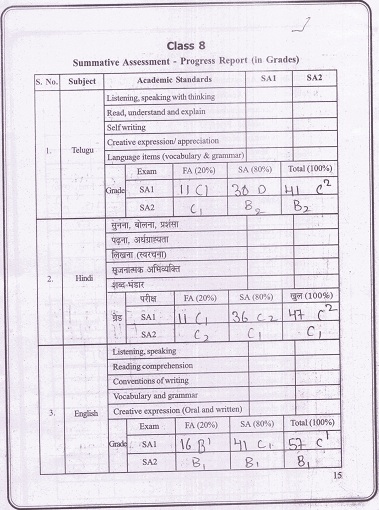 Class 8
Summative Assessment - Progress Report (in Grades)
S. No. Subject Academic Standards SA1 SA2
Listening, speaking with thinking
Read, understand and explain
Self writing
Creative expression/ appreciation
Language items (vocabulary & grammar)
1. Telugu
Exam FA (20%) SA (80%) Total (100%)
Grade SA1 11 C1 30 D 41 C2
SA2 C1 B2 B2
सुनना, बोलना, प्रशंसा
पढ़ना, अर्थग्राह्यता
लिखना (स्वरचना)
सृजनात्मक अभिव्यक्ति
शब्द-भंडार
2. Hindi
परीक्ष FA (20%) SA (80%) खुल (100%)
ग्रेड SA1 11 C1 36 C2 47 C2
SA2 C2 C1 C1
Listening, speaking
Reading comprehension
Conventions of writing
Vocabulary and grammar
Creative expression (Oral and written)
3. English
Exam FA (20%) SA (80%) Total (100%)
Grade SA1 16 B1 41 C1 57 C1
SA2 B1 B1 B1
15